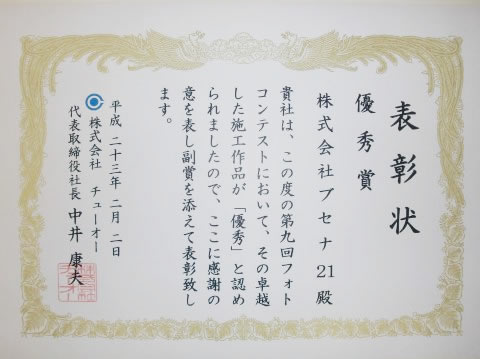 表彰状
優秀賞
株式会社ブセナ21殿
貴社は、この度の第九回フォト
コンテストにおいて、その卓越
した施工作品が「優秀」と認め
られましたので、ここに感謝の
意を表し副賞を添えて表彰致し
ます。
平成 二十三年 二月 二日
株式会社 チューオー
代表取締役社長 中井 康夫